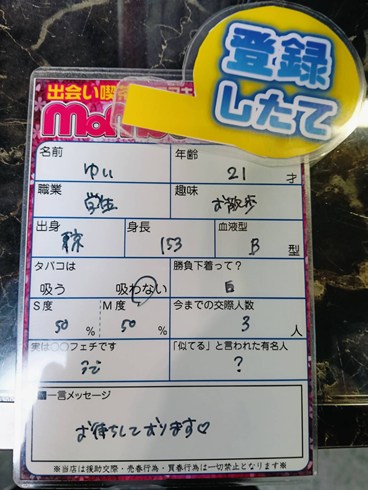 登録
したて
出会い喫
名前 ゆい 年齢 21 才
職業 学生 趣味 お散歩
出身 東京 身長 153 血液型 B 型
タバコは 勝負下着って?
吸う 吸わない 白
S度 M度 今までの交際人数
50 % 50 % 3 人
実は○○フェチです 「似てる」と言われた有名人
?
■一言メッセージ
お待ちしております♡
※当店は援助交際・売春行為・買春行為は一切禁止となります※